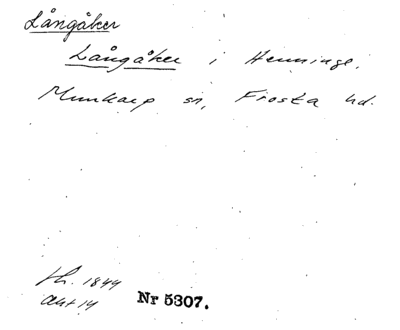 Långåker
Långåker i Henninge.
Munkarp sn, Frosta hd.
th. 1844
Akt 14 Nr 5307.